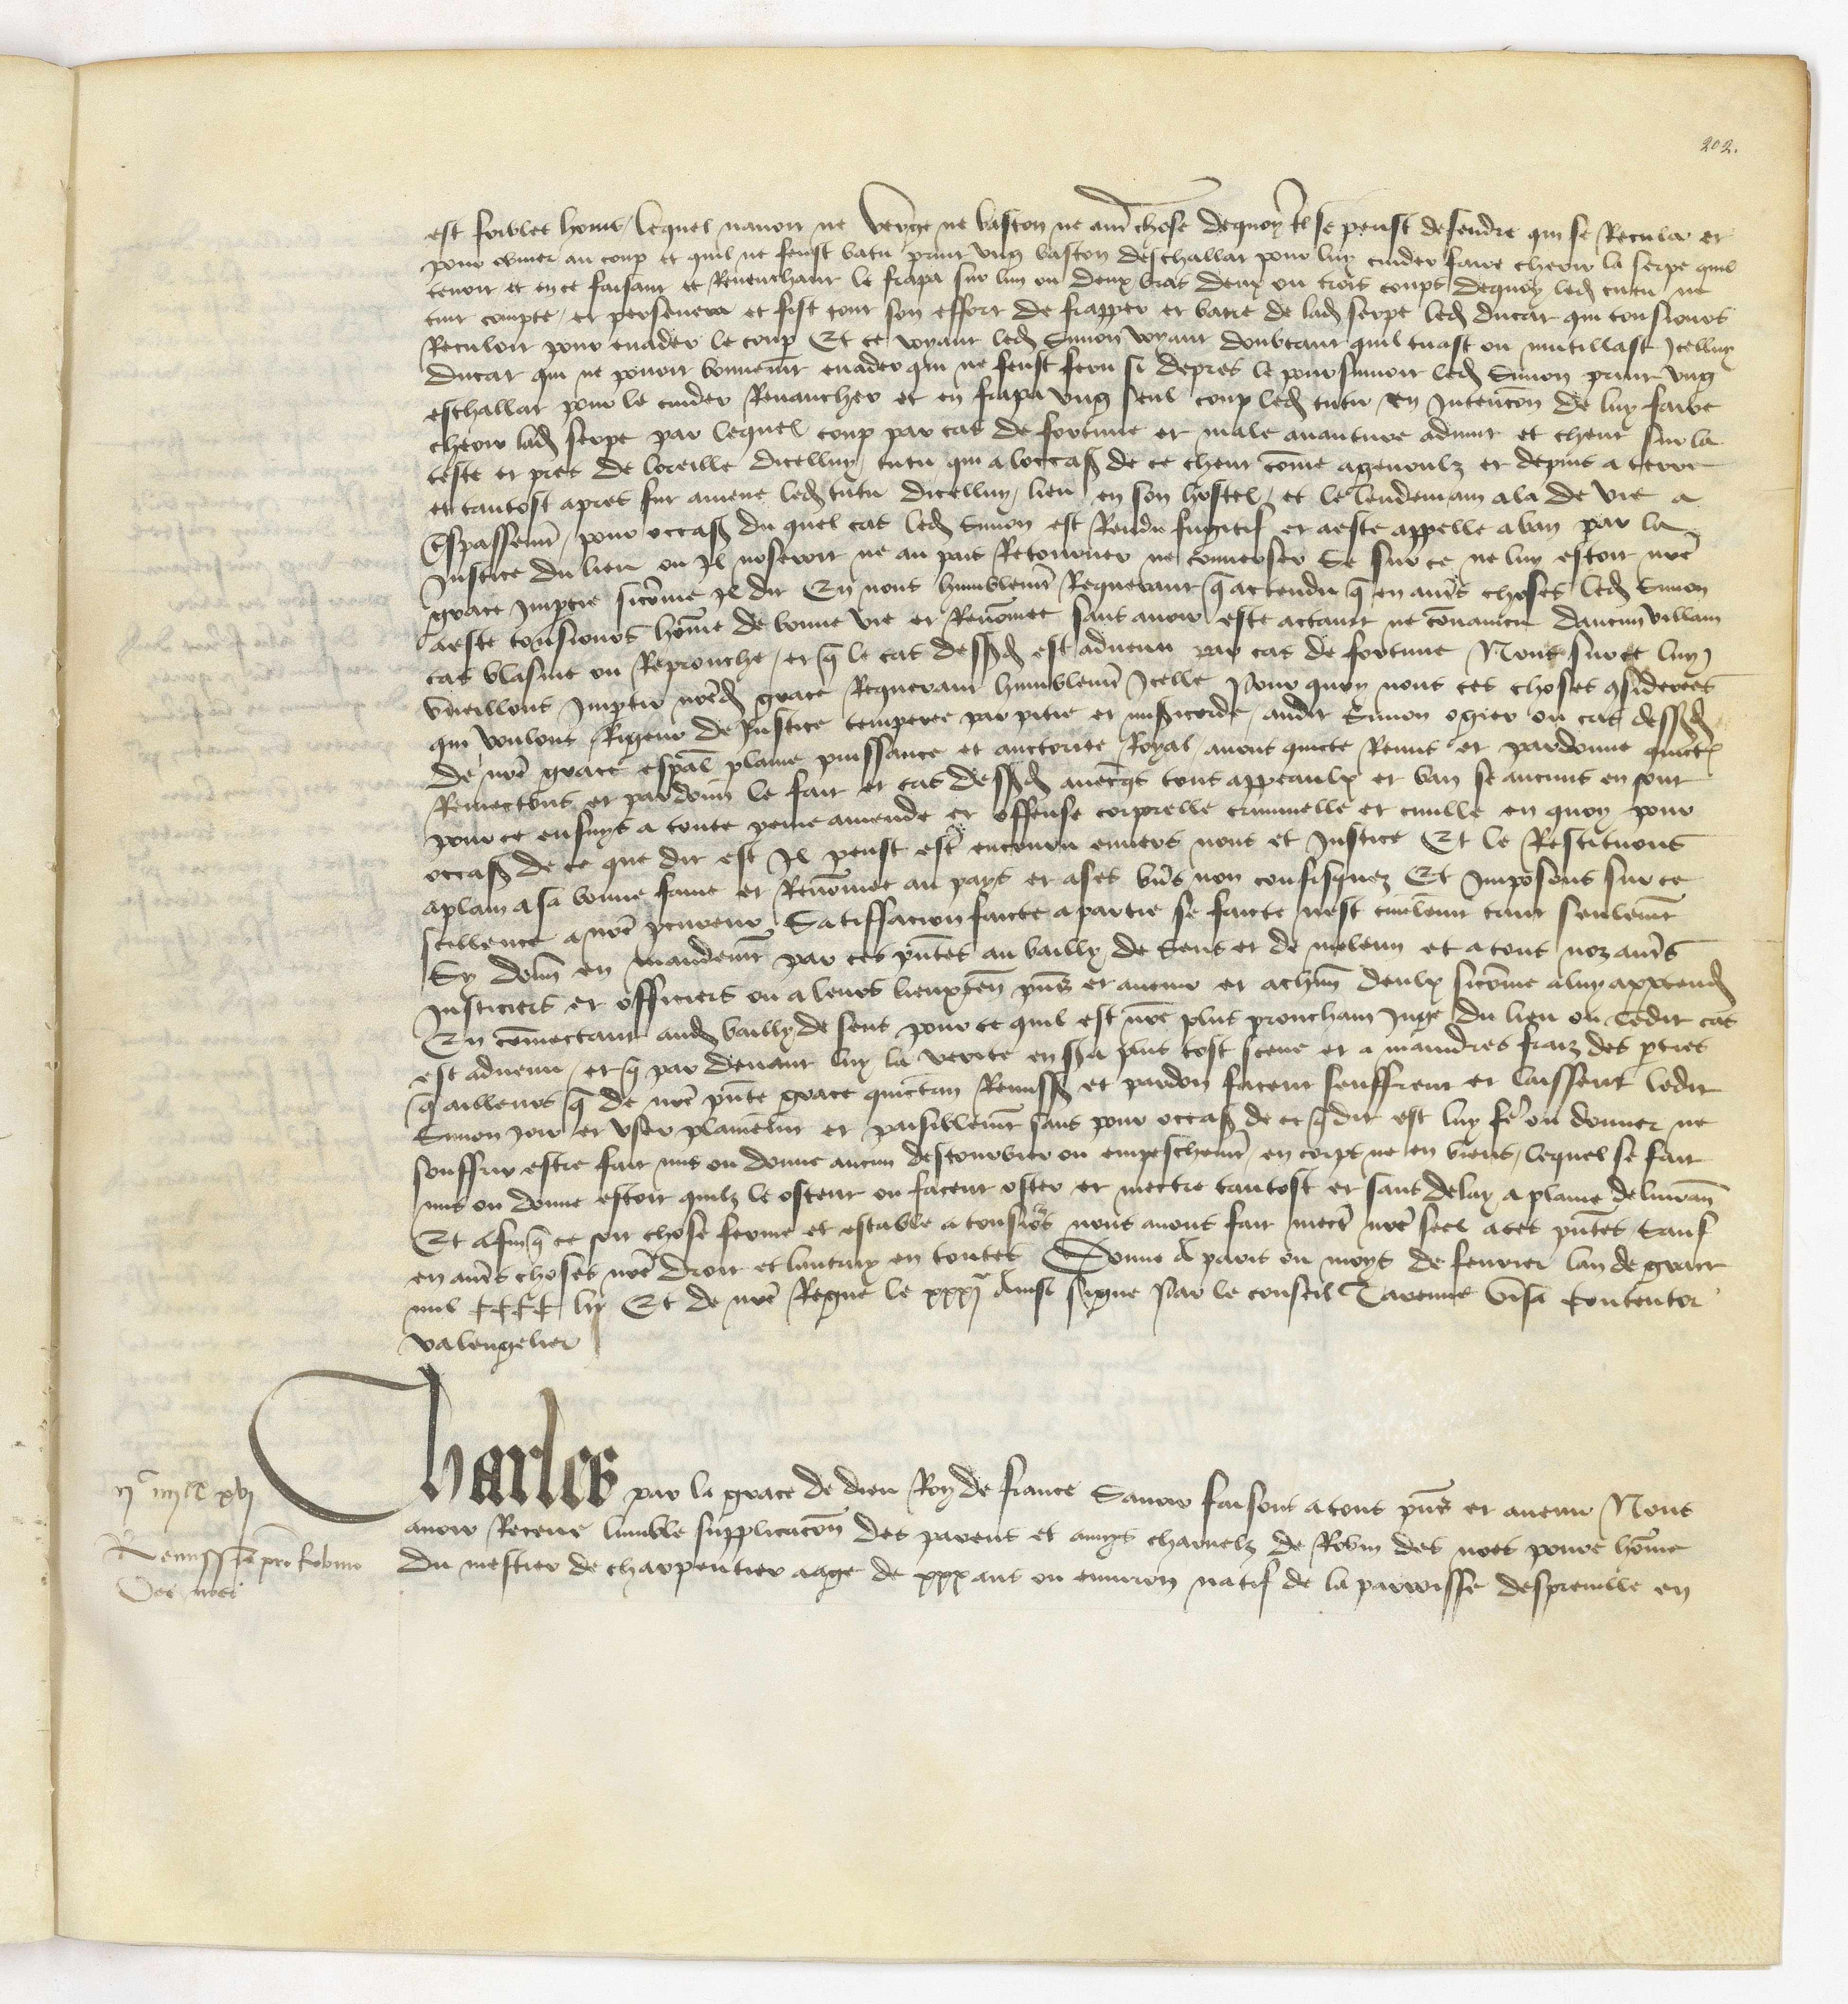 202.
est foiblet home lequel nauoit ne verge ne baston ne autre chose dequoy il se peust defendre qui se Recula et
pour obuier au coup et quil ne feust batu print vng baston deschallat pour luy cuider faire cheoir la serpe quil
tenoit et en ce faisant et Reuenchant le frapa sur lun ou deux bras deux ou trois coups dequoy led tutu ne
tint compte et perseuera et fist tout son effort de frapper et batre de lad serpe led ducat qui tousiours
Reculoit pour euader le coup Et ce voyant led Simon voyant doubtant quil tuast ou mutillast Icelluy
ducat qui ne pouoit bonnemt euader qui ne feust feru si depres le poursuiuoit led Simon print vng
eschallat pour le cuider Reuancher et en frapa vng seul coup led tutu en Intencon de luy faire
cheoir lad serpe par lequel coup par cas de fortune et male auanture aduint et cheut sur la
teste et pres de loreille dicelluy tutu qui a loccasß de ce cheut come agenoulz et depuis a terre
et tantost apres fut amene led tutu dicelluy lieu en son hostel et le lendemain ala de vie a
trespassemt pour occasß du quel cas led Simon est Rendu fugitif et a este appelle a ban par la
Justice du lieu ou Il noseroit ne au pais Retourner ne conuerser se sur ce ne luy estoit nre
grace Imptie sicome Il dit En nous humblemt Requerant q actendu q en autres choses led Simon
a este tousiours home de bonne vie et Renomee sans auoir este actaint ne conuaincu daucun villain
cas blasme ou Reprouche et q le cas dessusd est aduenu par cas de fortune Nous sur ce luy
vueillons Imptir nred grace Requerant humblemt Icelle Pour quoy nous ces choses considerees
qui voulons Rigeur de Justice temperee par pitie et misericorde audit Simon ogier ou cas dessusd
de nre grace espal plaine puissance et auctorite Royal auons quicte Remis et pardonne quictons
Remectons et pardonn le fait et cas dessusd auecqs tous appeaulx et ban se aucuns en sont
pour ce ensuys a toute peine amende et offense corporelle criminelle et ciuille en quoy pour
occasß de ce que dit est Il peust estre encouru enuers nous et Justice Et le Restituons
a plain a sa bonne fame et Renommee au pays et a ses biens non confisquez Et Imposons sur ce
scillence a nre procureur Satiffacion faicte a partie se faicte nest ciuilemt tant seulemt
Sy donn en mandemt par ces pntes au bailly de Sens et de meleun et a tous noz autres
Justiciers et officiers ou a leurs lieuxten pns et auenir et a chm deulx sicome a luy appartend
En comectant aud bailly de sens pour ce quil est nre plus prouchain Juge du lieu ou ledit cas
est aduenu et q par deuant luy la verite en sera plus tost sceue et a maindres fraiz des pties
q ailleurs q de nre pnte grace quictan Remissß et pardon facent seuffrent et laissent ledit
Simon joir et vser plainemt et paisiblemt sans pour occasß de ce q dit est luy fe ou donner ne
souffrir estre fait mis ou donne aucun destourbier ou empeschemt en corps ne en biens lequel se fait
mis ou donne estoit quilz le ostent ou facent oster et mectre tantost et sans delay a plaine deliuran
Et afin q ce soit chose ferme et estable a tousiours nous auons fait mectre nre seel a ces pntes Sauf
en autres choses nre droit et lautruy en toutes Donne A paris ou moys de feurier lan de grace
mil CCCC lij Et de nre Regne le xxxj Ainsi signe Par le conseil Tarenne visa Contentor
valengelier
Charles par la grace de dieu Roy de france Sauoir faisons a tous pns et auenir Nous
auoir Receue lumble supplicacon des parens et amys charnelz de Robin des noes poure home
du mestier de charpentier aage de xxx ans ou enuiron natif de la parroisse despreuille en
ijc iiijxx xvj
Remissio pro Robino
des noes